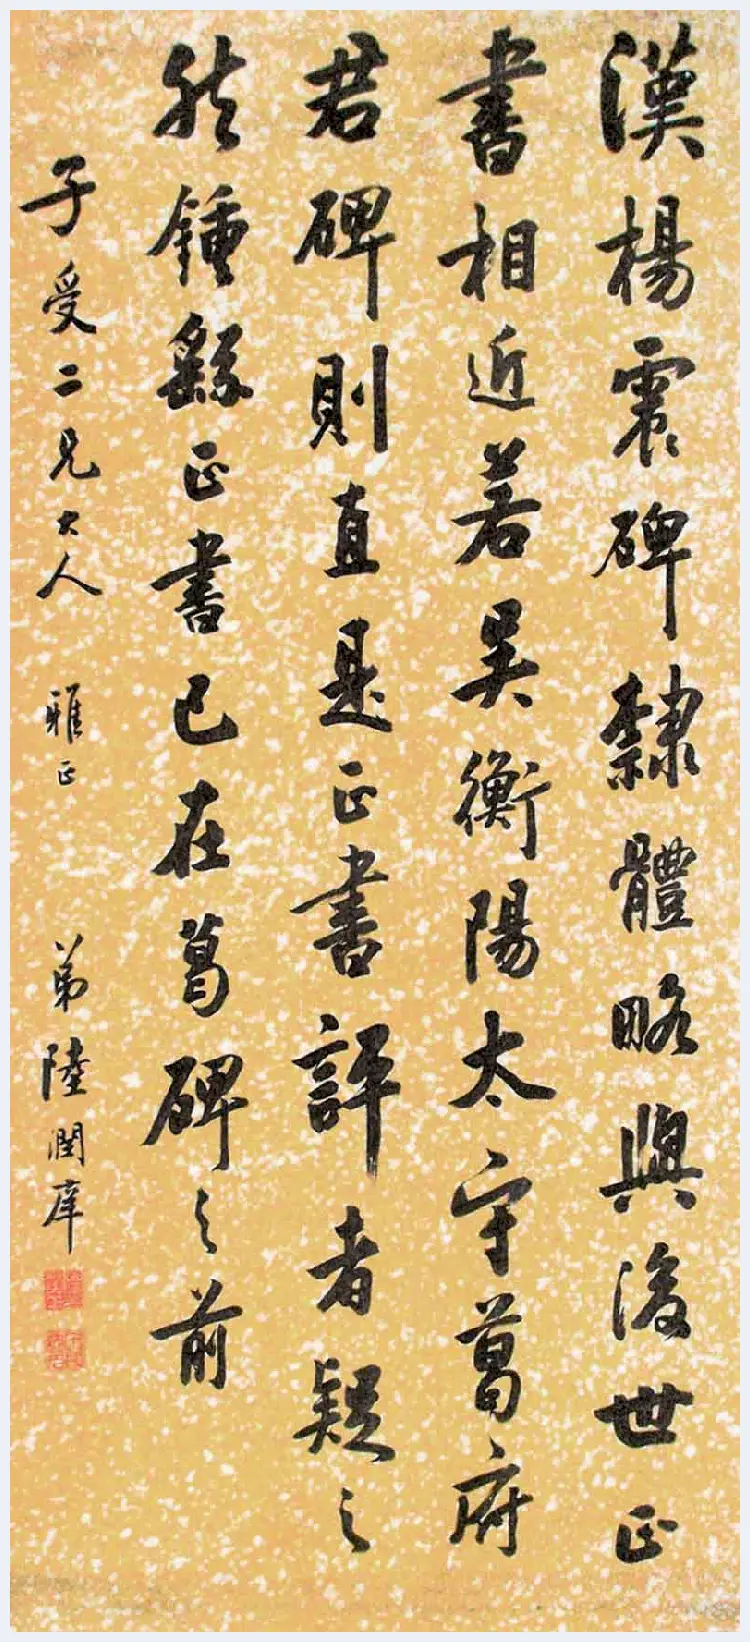 漢楊震碑隸體略與後世正
書相近若吴衡陽太守葛府
君碑則直是正書評者疑之
然鍾繇正書已在葛碑之前
子受二兄大人 雅正 弟陸潤庠